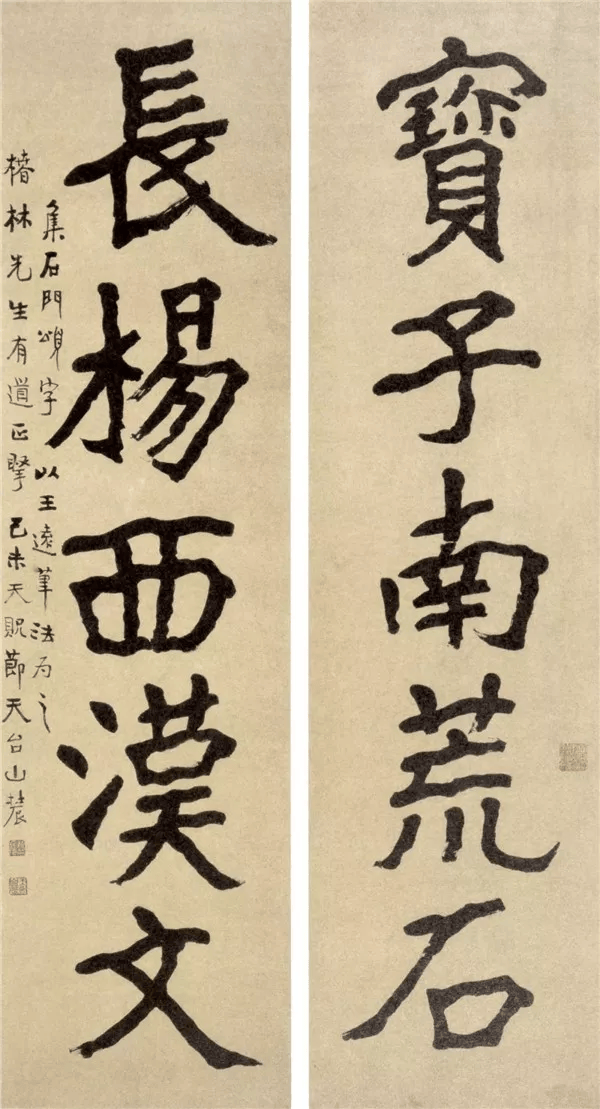 寶子南荒石
長楊西漢文
集石門頌字以王遠筆法为之
椿林先生有道正擥己未天貺節天台山農